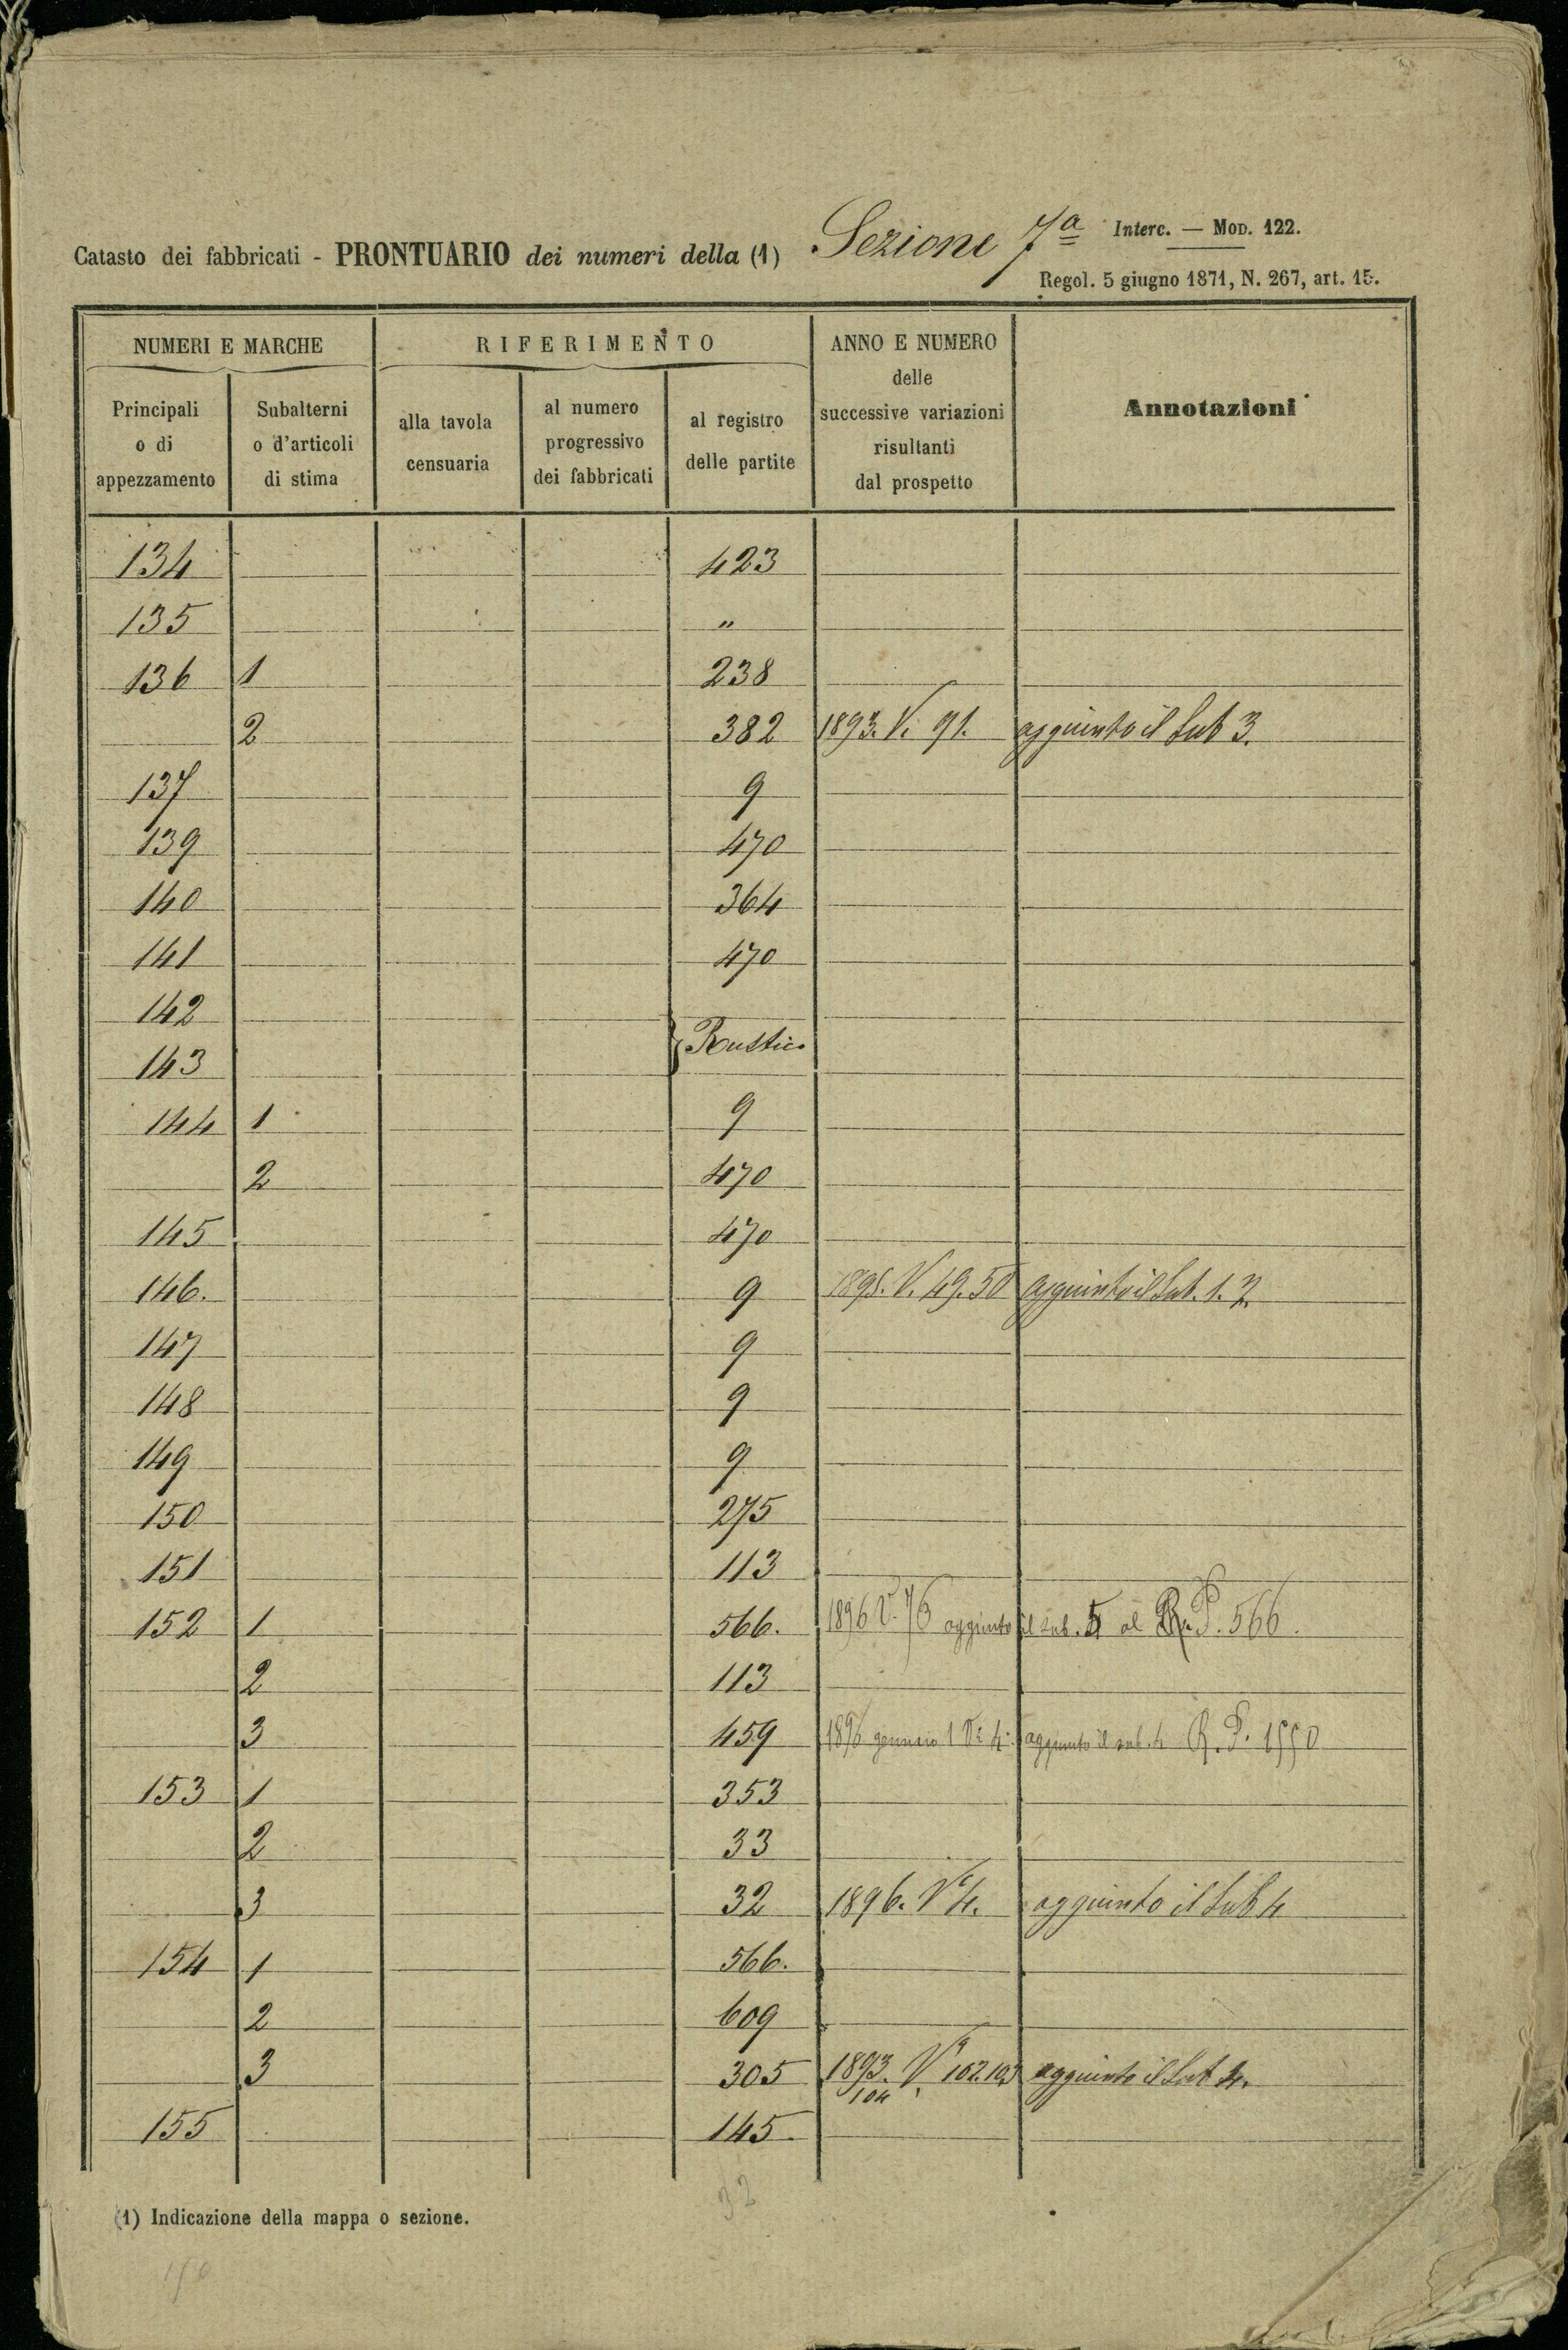 Catasto dei fabbricati - PRONTUARIO dei numeri della (1) Sezione 7ª Interc. — MOD. 122.
Regol. 5 giugno 1871, N. 267, art. 15.
NUMERI E MARCHE RIFERIMENTO ANNO E NUMERO delle successive variazioni risultanti dal prospetto Annotazioni
Principali o di appezzamento Subalterni o d'articoli di stima alla tavola censuaria al numero progressivo dei fabbricati al registro delle partite
134 423
135 "
136 1 238
2 382 1893. V. 91. aggiunto il Sub 3.
137 9
139 470
140 364
141 470
142
} Rustico
143
144 1 9
2 470
145 470
146. 9 V. 49.50 aggiunto il Sub. 1. 2.
147 9
148 9
149 9
150 275
151 113
152 1 566. 1896 V. 76 aggiunto il sub. 5 al R. P. 566.
2 113
3 459 1896 gennaio 1 Vª 4 aggiunto il sub. 4 R. P. 1550
153 1 353
2 33
3 32 1896. Vª 4. aggiunto il Sub 4
154 1 566.
2 609
3 305 1893. Vª 102.103 aggiunto il Sub 4.
104
155 145.
32
(1) Indicazione della mappa o sezione.